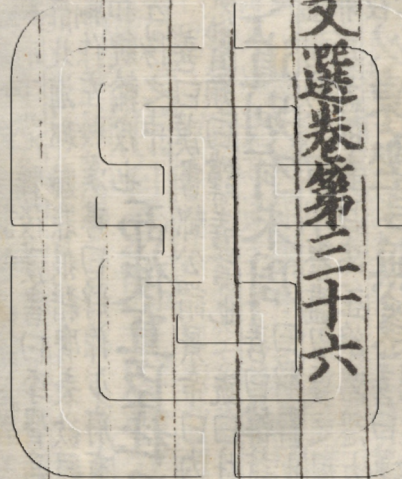 文選卷第三十六